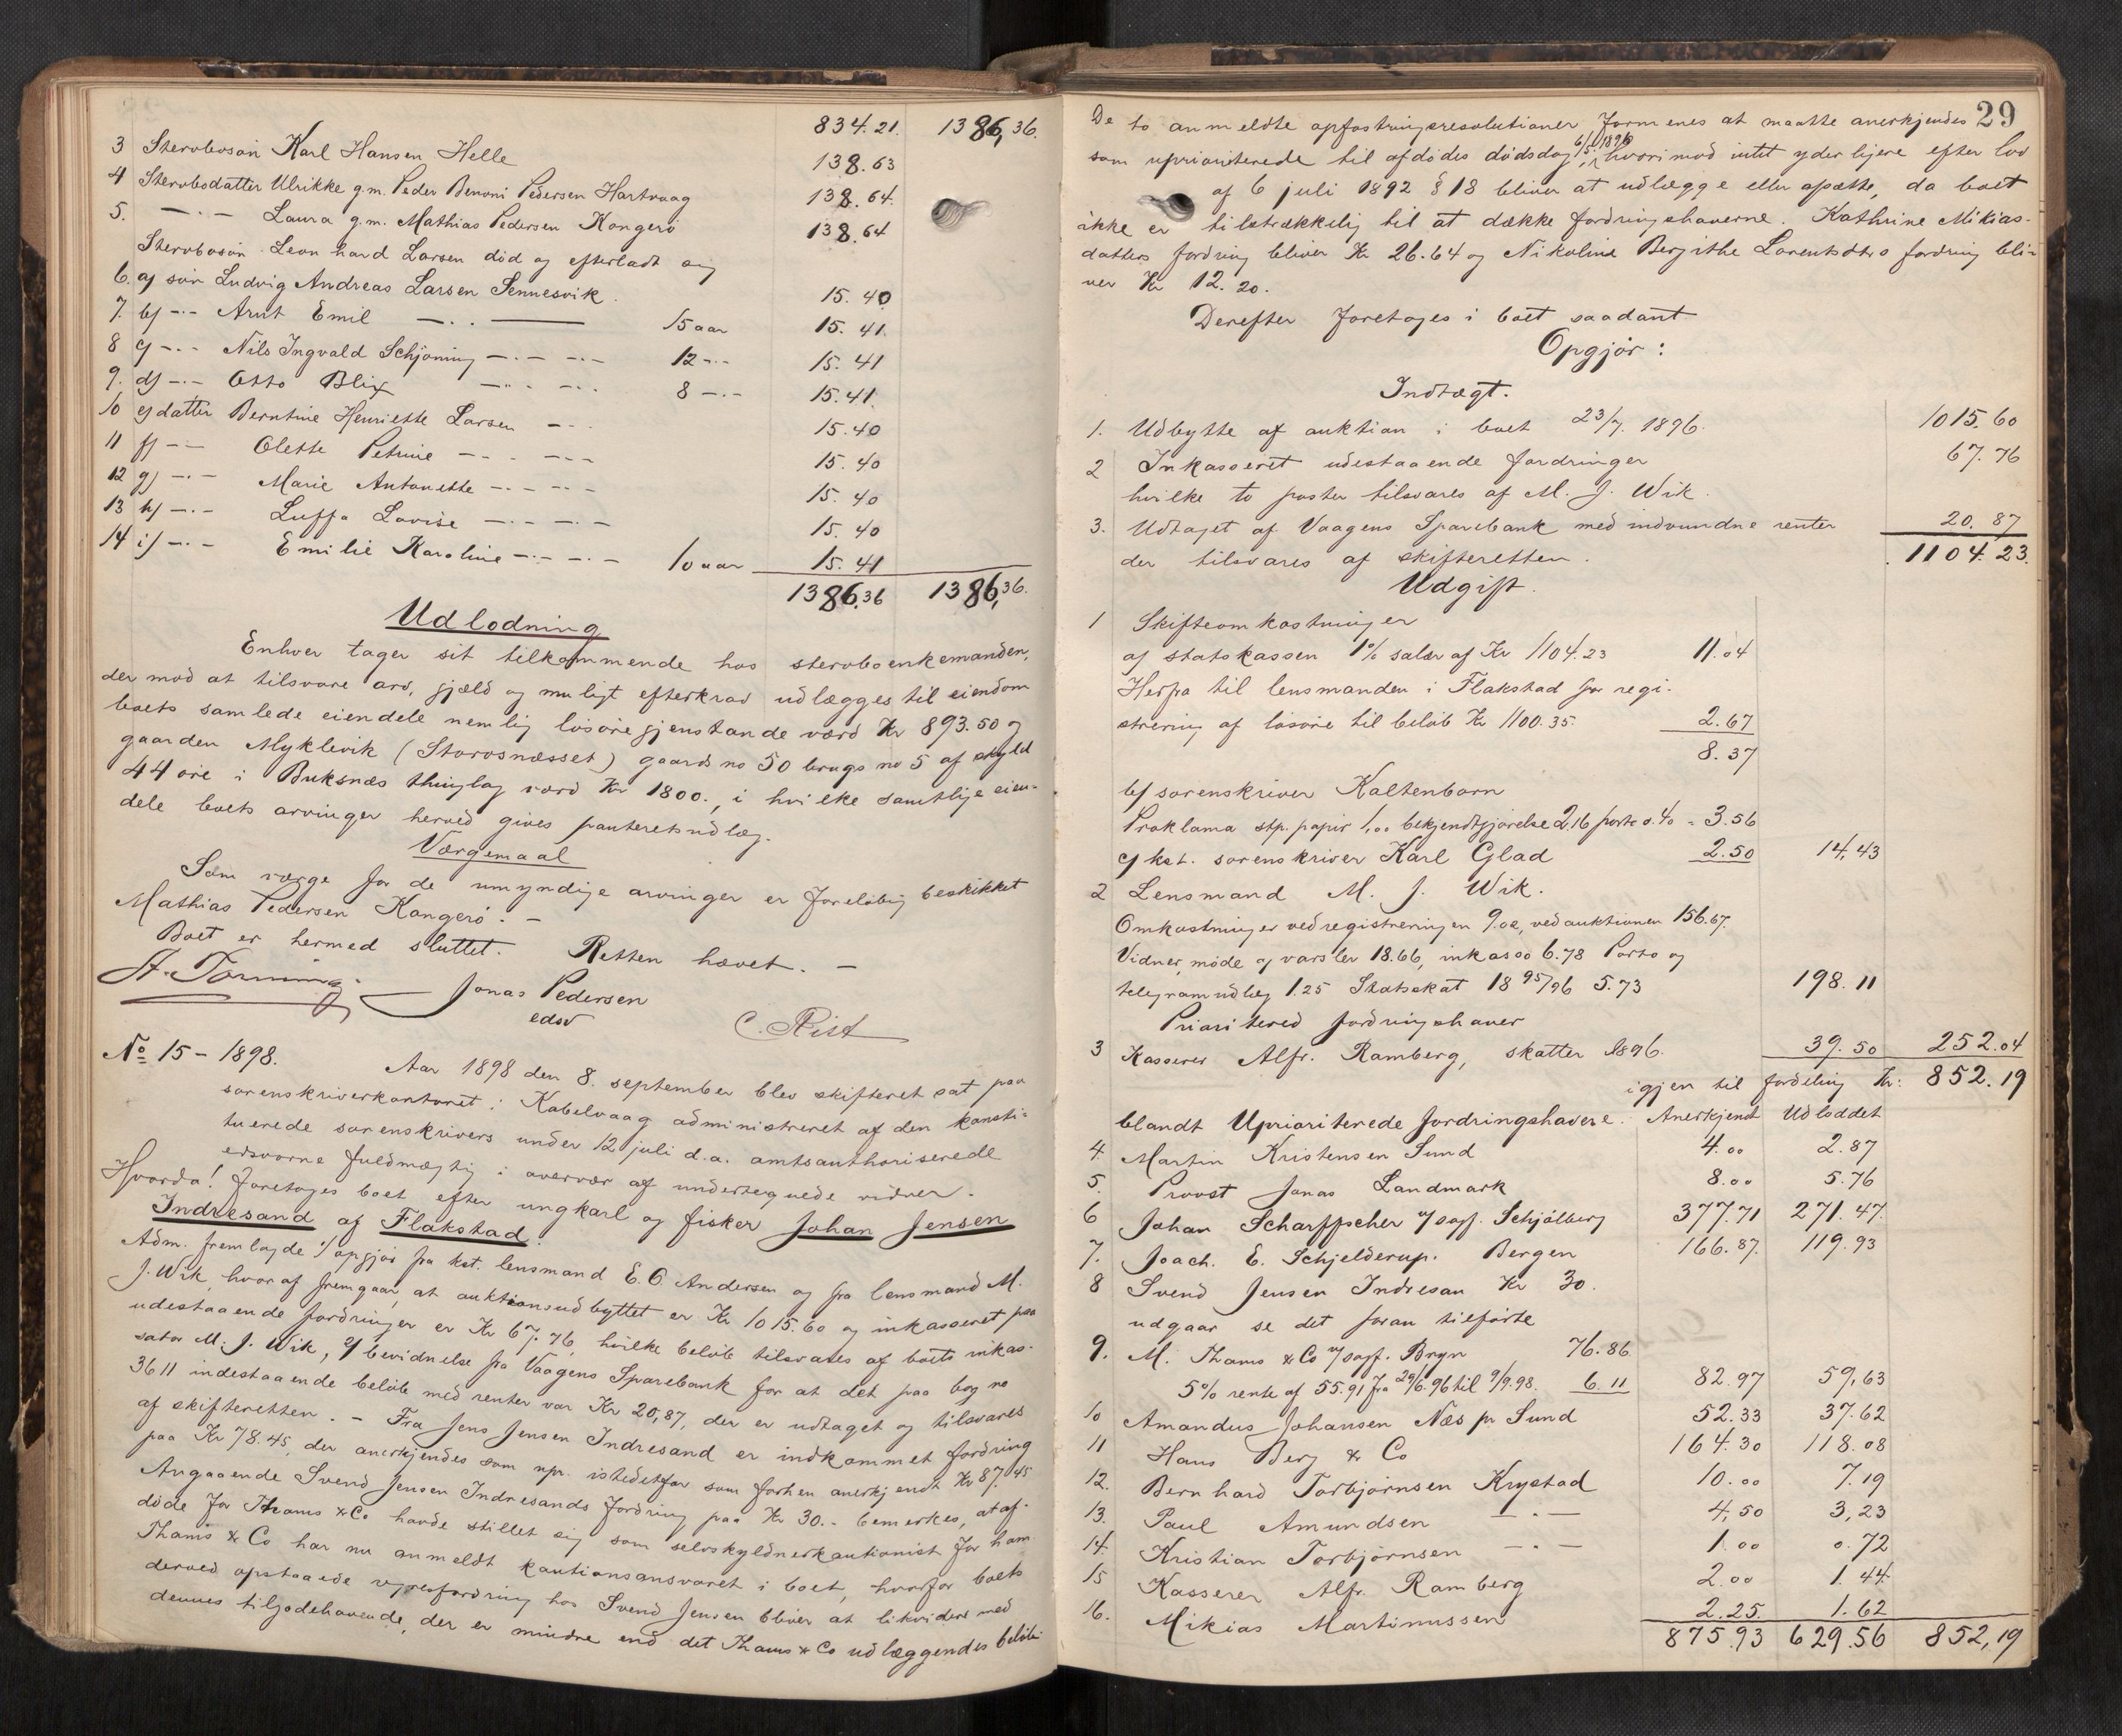 834.21. 1386,36.
3 Stervbosön Karl Hansen Helle 138.63
4 Stervbodatter Ulrikke g.m. Peder Benoni Pedersen Hartvaag 138.64.
5. —·— Laura g.m. Mathias Pedersen Kangerö 138.64
Stervbosön Leonhard Larsen död og efterladt sig
6. a) sön Ludvig Andreas Larsen Sennesvik 15.40
7. b) -·- Arnt Emil —·· —— 15 aar 15.41.
8 c) -·- Nils Ingvald Schjöning —·— —·— 12 -·- 15.41
9. d) -·- Otto Blix —·· —·· 8 —·- 15.41.
10 e) datter Berntine Henriette Larsen —·- 15.40
11 f) -·- Olette Petrine —·- —·- 15.40
12 g) -·- Marie Antonette —·- —·- 15.40
13 h) -·- Luffa Lovise —·- —·- 15.40
14 i) -·- Emilie Karoline —·- —·- 10 aar 15.41
1386.36 1386,36.
Udlodning
Enhver tager sit tilkommende hos stervboenkemanden,
der mod at tilsvare arv, gjæld og muligt efterkrav udlægges til eiendom
boets samlede eiendele nemlig lösöregjenstande værd Kr 893.50 og
gaarden Myklevik (Storosnæsset) gaards no 50 brugs no 5 af skyld
44 öre i Buksnæs thinglag værd Kr 1800., i hvilke samtlige eien-
dele boets arvinger herved gives panteretsudlæg.
Værgemaal
Som værge for de umyndige arvinger er foreløbig beskikket
Mathias Pedersen Kangerö. —
Boet er hermed sluttet. Retten hævet. —
Jonas Pedersen
edsv
C. Rist
No 15 - 1898.
Aar 1898 den 8. september blev skifteret sat paa
sorenskriverkontoret i Kabelvaag administreret af den konsti-
tuerede sorenskrivers under 12 juli d.a. amtsauthoriserede
edsvorne fuldmægtig i overvær af undertegnede vidner.
Hvorda! foretoges boet efter ungkarl og fisker Johan Jensen
Indresand af Flakstad.
Adm. fremlagde 1) opgjör fra kst. lensmand E. O. Andersen og fra lensmand M.
J. Wik, hvoraf fremgaar, at auktionsudbyttet er Kr 1015.60 og inkasseret paa
udestaaende fordringer er Kr 67.76, hvilke beløb tilsvares af boets inkas-
sator M. J. Wik, 2) bevidnelse fra Vaagens Sparebank for at det paa bog no
3611 indestaaende beløb med renter var Kr 20,87, der er udtaget og tilsvares
af skifteretten. — Fra Jens Jensen Indresand er indkommet fordring
paa Kr 78.45, der anerkjendes som upr. istedetfor som forhen anerkjendt Kr 87.45
Angaaende Svend Jensen Indresands fordring paa Kr 30.- bemerkes, at af-
döde for Thams & Co havde stillet sig som selvskyldnerkautionist for ham
Thams & Co har nu anmeldt kautionsansvaret i boet, hvorfor boets
derved opstaaede regresfordring hos Svend Jensen bliver at likvidere med
dennes tilgodehavende, der er mindre end det Thams & Co udlæggendes beløb
29
De to anmeldte opfostringsresolutioner formenes at maatte anerkjendes
som uprioriterede til afdödes dödsdag 6/5 1896, hvorimod intet yderligere efter lov
af 6 juli 1892 § 18 bliver at udlægge eller afsætte, da boet
ikke er tilstrækkelig til at dække fordringshaverne. Kathrine Mikias-
datters fordring bliver Kr 26.64 og Nikoline Bergithe Lorentsdtrs fordring bli-
ver Kr 12.20.
Derefter foretoges i boet saadant
Opgjör:
Indtægt.
1. Udbytte af auktion i boet 23/7. 1896. 1015.60
2 Inkasseret udestaaende fordringer 67.76
hvilke to poster tilsvares af M. J. Wik.
3. Udtaget af Vaagens Sparebank med indvundne renter 20.87
der tilsvares af skifteretten. 1104.23.
Udgift.
1 Skifteomkostninger
a) statskassen 1% salær af Kr 1104.23 11.04
Herfra til lensmanden i Flakstad for regi-
strering af lösöre til beløb Kr 1100.35. 2.67
8.37
b) sorenskriver Kaltenborn
Proklama stp. papir 1,00 bekjendtgjörelse 2,16 porto 0.40 = 3.56
c) kst. sorenskriver Karl Glad 2.50 14,43
2 Lensmand M. J. Wik.
Omkostninger ved registreringen 9.02, ved auktionen 156.67.
Vidner, möde og varsler 18.66, inkasso 6.78 Porto og
telegramudlæg 1.25 Statsskat 1895/96 5.73 198.11
Prioritered fordringshaver
3 Kasserer Alfr. Ramberg, skatter 1896. 39.50 252.04
igjen til fordeling Kr: 852.19
blandt Uprioriterede fordringshavere. Anerkjendt Udloddet
4. Martin Kristensen Sund 4.00 2.87
5. Provst Jonas Landmark 8.00 5.76
6 Johan Scharffscher v/ sagf. Schjölberg 377.71 271.47.
7. Joach. E. Schjelderup. Bergen 166.87. 119.93
8 Svend Jensen Indresan Kr 30.
udgaar se det foran tilførte
9. M. Thams & Co v/ sagf. Bryn 76.86
5% rente af 55.91 fra 29/6.96 til 9/9.98. 6.11 82.97 59,63
10 Amandus Johansen Næs pr Sund 52.33 37.62
11 Hans Berg & Co 164.30 118.08
12. Bernhard Torbjörnsen Krystad 10.00 7.19
13. Paul Amundsen —·— 4,50 3,23
14. Kristian Torbjörnsen —·— 1.00 0.72
15 Kasserer Alfr. Ramberg 2.00 1.44
16. Mikias Martinussen 2.25. 1.62
875.93 629.56 852,19